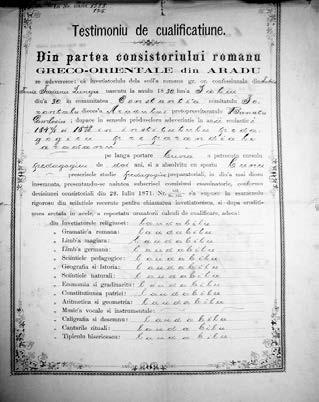 Testimoniu de cualificatiune.
Din partea consistoriului romanu
GRECO-ORIENTALE din ARADU
se adeveresce: că invetiatoriulu dela scól'a romana gr. or. confesionala din
nascutu la anulu 18 30 lun'a Iuliu
diu'a 30 in comunitatea Constantia comitatulu To-
rontalu dieces'a Aradului protopresviteratulu Banatu
dupace in semnulu producerei adeverintiei in anii scolastici
in institutulu peda-
gogicu preparandialu
aradanu
pe langa portare buna a petrecutu cursulu
pedagogicu de doi ani, si a absolvitu cu sporiu bunu
prescrisele studie pedagogice preparandiali, in diu'a mai diosu
insemnata, presentandu-se naintea subscrisei comisiuni esaminatórie, conformu
decisiunei consistoriali din 28. Iuliu 1871: Nr. s'a supusu la esamenulu
rigorosu din sulintiele recerute pentru chiamarea invetiatorésca, si dupa eruditiunea
aretata in acele, a reportatu urmatorii calculi de cualificatiune, adeca:
din Invetiaturele religiose: laudabilu
„ Gramatic'a romana: laudabilu
„ Limb'a magiara: laudabilu
„ Limb'a germana: laudabilu
„ Scientiele pedagogice: laudabilu
„ Geografia si Istoria: laudabilu
„ Scientiele naturali: laudabilu
„ Economia si gradinaritu: laudabilu
„ Constitutiunea patriei: laudabilu
„ Aritmetica si geometria: laudabilu
„ Music'a vocale si instrumentale:
„ Caligrafia si desemnu: laudabilu
„ Cantarile rituali: laudabilu
„ Tipiculu bisericescu: laudabilu